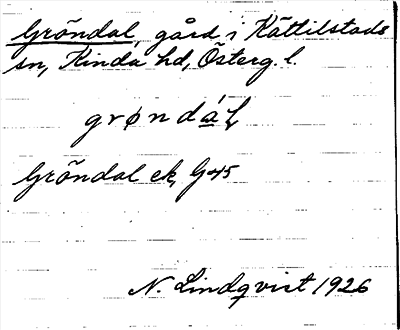 Gröndal, gård i Kättilstads
sn, Kinda hd, Österg. l.
grøndáł,
Gröndal ek, G45
N. Lindqvist 1926